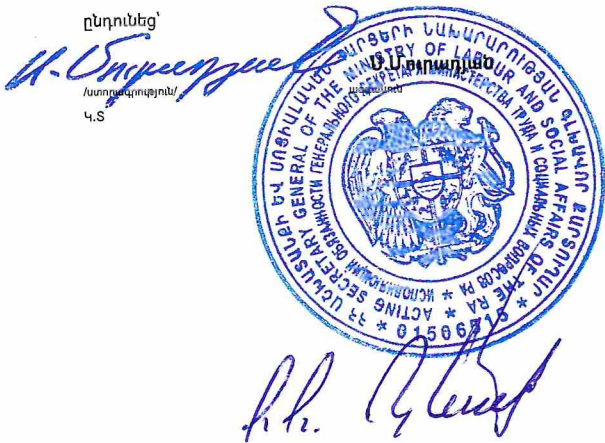 ընդունեց՝
Ա. Մուրադյան
/ստորագրություն/
Կ.Տ
ՀՀ ԱՇԽԱՏԱՆՔԻ ԵՎ ՍՈՑԻԱԼԱԿԱՆ ՀԱՐՑԵՐԻ ՆԱԽԱՐԱՐՈՒԹՅԱՆ ԳԼԽԱՎՈՐ ՔԱՐՏՈՒՂԱՐ
ACTING SECRETARY GENERAL OF THE MINISTRY OF LABOUR AND SOCIAL AFFAIRS OF THE RA
ИСПОЛНЯЮЩИЙ ОБЯЗАННОСТИ ГЕНЕРАЛЬНОГО СЕКРЕТАРЯ МИНИСТЕРСТВА ТРУДА И СОЦИАЛЬНЫХ ВОПРОСОВ РА